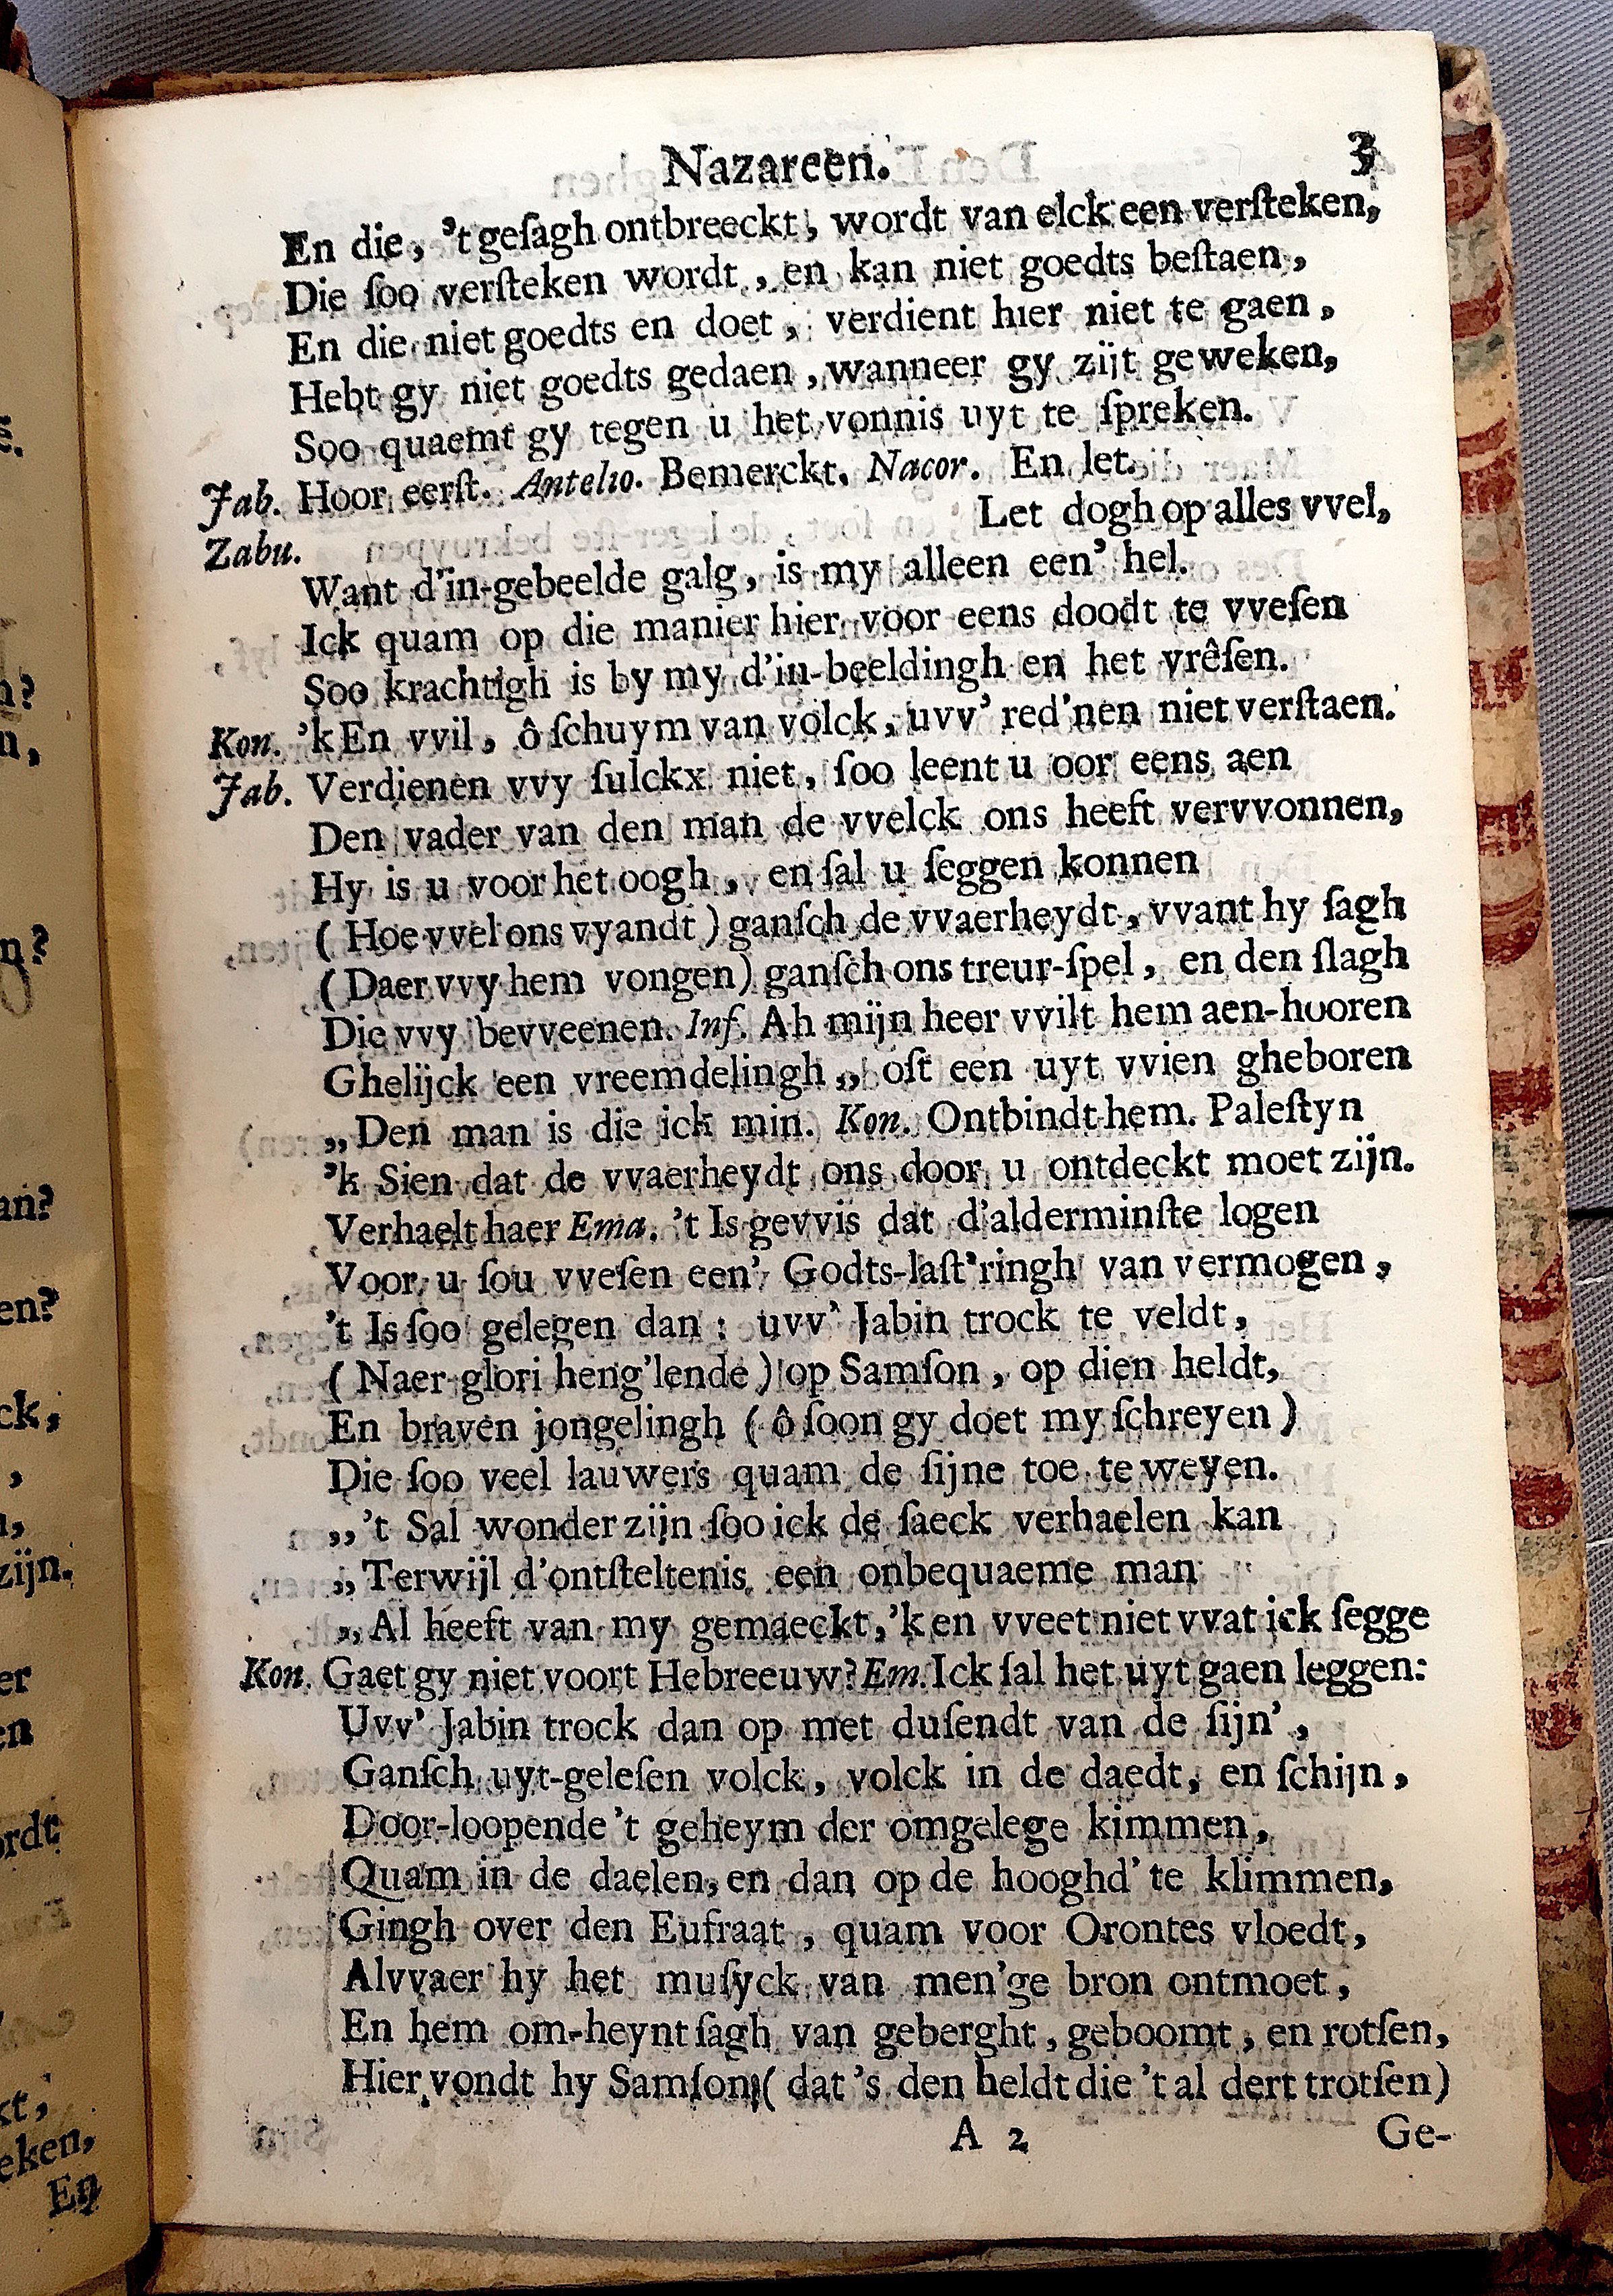 Nazareen. 3
En die, 't geſagh ontbreeckt, wordt van elck een verſteken,
Die ſoo verſteken wordt, en kan niet goedts beſtaen,
En die niet goedts en doet, verdient hier niet te gaen,
Hebt gy niet goedts gedaen, wanneer gy zijt geweken,
Soo quaemt gy tegen u het vonnis uyt te ſpreken.
Jab. Hoor eerſt. Antelio. Bemerckt. Nacor. En let.
Zabu. Let dogh op alles vvel,
Want d'in-gebeelde galg, is my alleen een' hel.
Ick quam op die manier hier voor eens doodt te vveſen
Soo krachtigh is by my d'in-beeldingh en het vrêſen.
Kon. 'k En vvil, ô ſchuym van volck, uvv' red'nen niet verſtaen.
Jab. Verdienen vvy ſulckx niet, ſoo leent u oor eens aen
Den vader van den man de vvelck ons heeft vervvonnen,
Hy is u voor het oogh, en ſal u ſeggen konnen
( Hoe vvel ons vyandt ) ganſch de vvaerheydt, vvant hy ſagh
( Daer vvy hem vongen) ganſch ons treur-ſpel, en den ſlagh
Die vvy bevveenen. Inf. Ah mijn heer vvilt hem aen-hooren
Ghelijck een vreemdelingh,, oft een uyt vvien gheboren
,, Den man is die ick min. Kon. Ontbindt hem. Paleſtyn
'k Sien dat de vvaerheydt ons door u ontdeckt moet zijn.
Verhaelt haer Ema. 't Is gevvis dat d'alderminſte logen
Voor u ſou vveſen een' Godts-laſt'ringh van vermogen,
't Is ſoo gelegen dan : uvv' Jabin trock te veldt,
( Naer glori heng'lende ) op Samſon, op dien heldt,
En braven jongelingh ( ô ſoon gy doet my ſchreyen )
Die ſoo veel lauwers quam de ſijne toe te weyen.
,, 't Sal wonder zijn ſoo ick de ſaeck verhaelen kan
,, Terwijl d'ontſteltenis een onbequaeme man
,, Al heeft van my gemaeckt, 'k en vveet niet vvat ick ſegge
Kon. Gaet gy niet voort Hebreeuw? Em. Ick ſal het uyt gaen leggen:
Uvv' Jabin trock dan op met duſendt van de ſijn',
Ganſch uyt-geleſen volck, volck in de daedt, en ſchijn,
Door-loopende 't geheym der omgelege kimmen,
Quam in de daelen, en dan op de hooghd' te klimmen,
Gingh over den Eufraat, quam voor Orontes vloedt,
Alvvaer hy het muſyck van men'ge bron ontmoet,
En hem om-heynt ſagh van geberght, geboomt, en rotſen,
Hier vondt hy Samſon ( dat 's den heldt die 't al dert trotſen)
A 2 Ge-